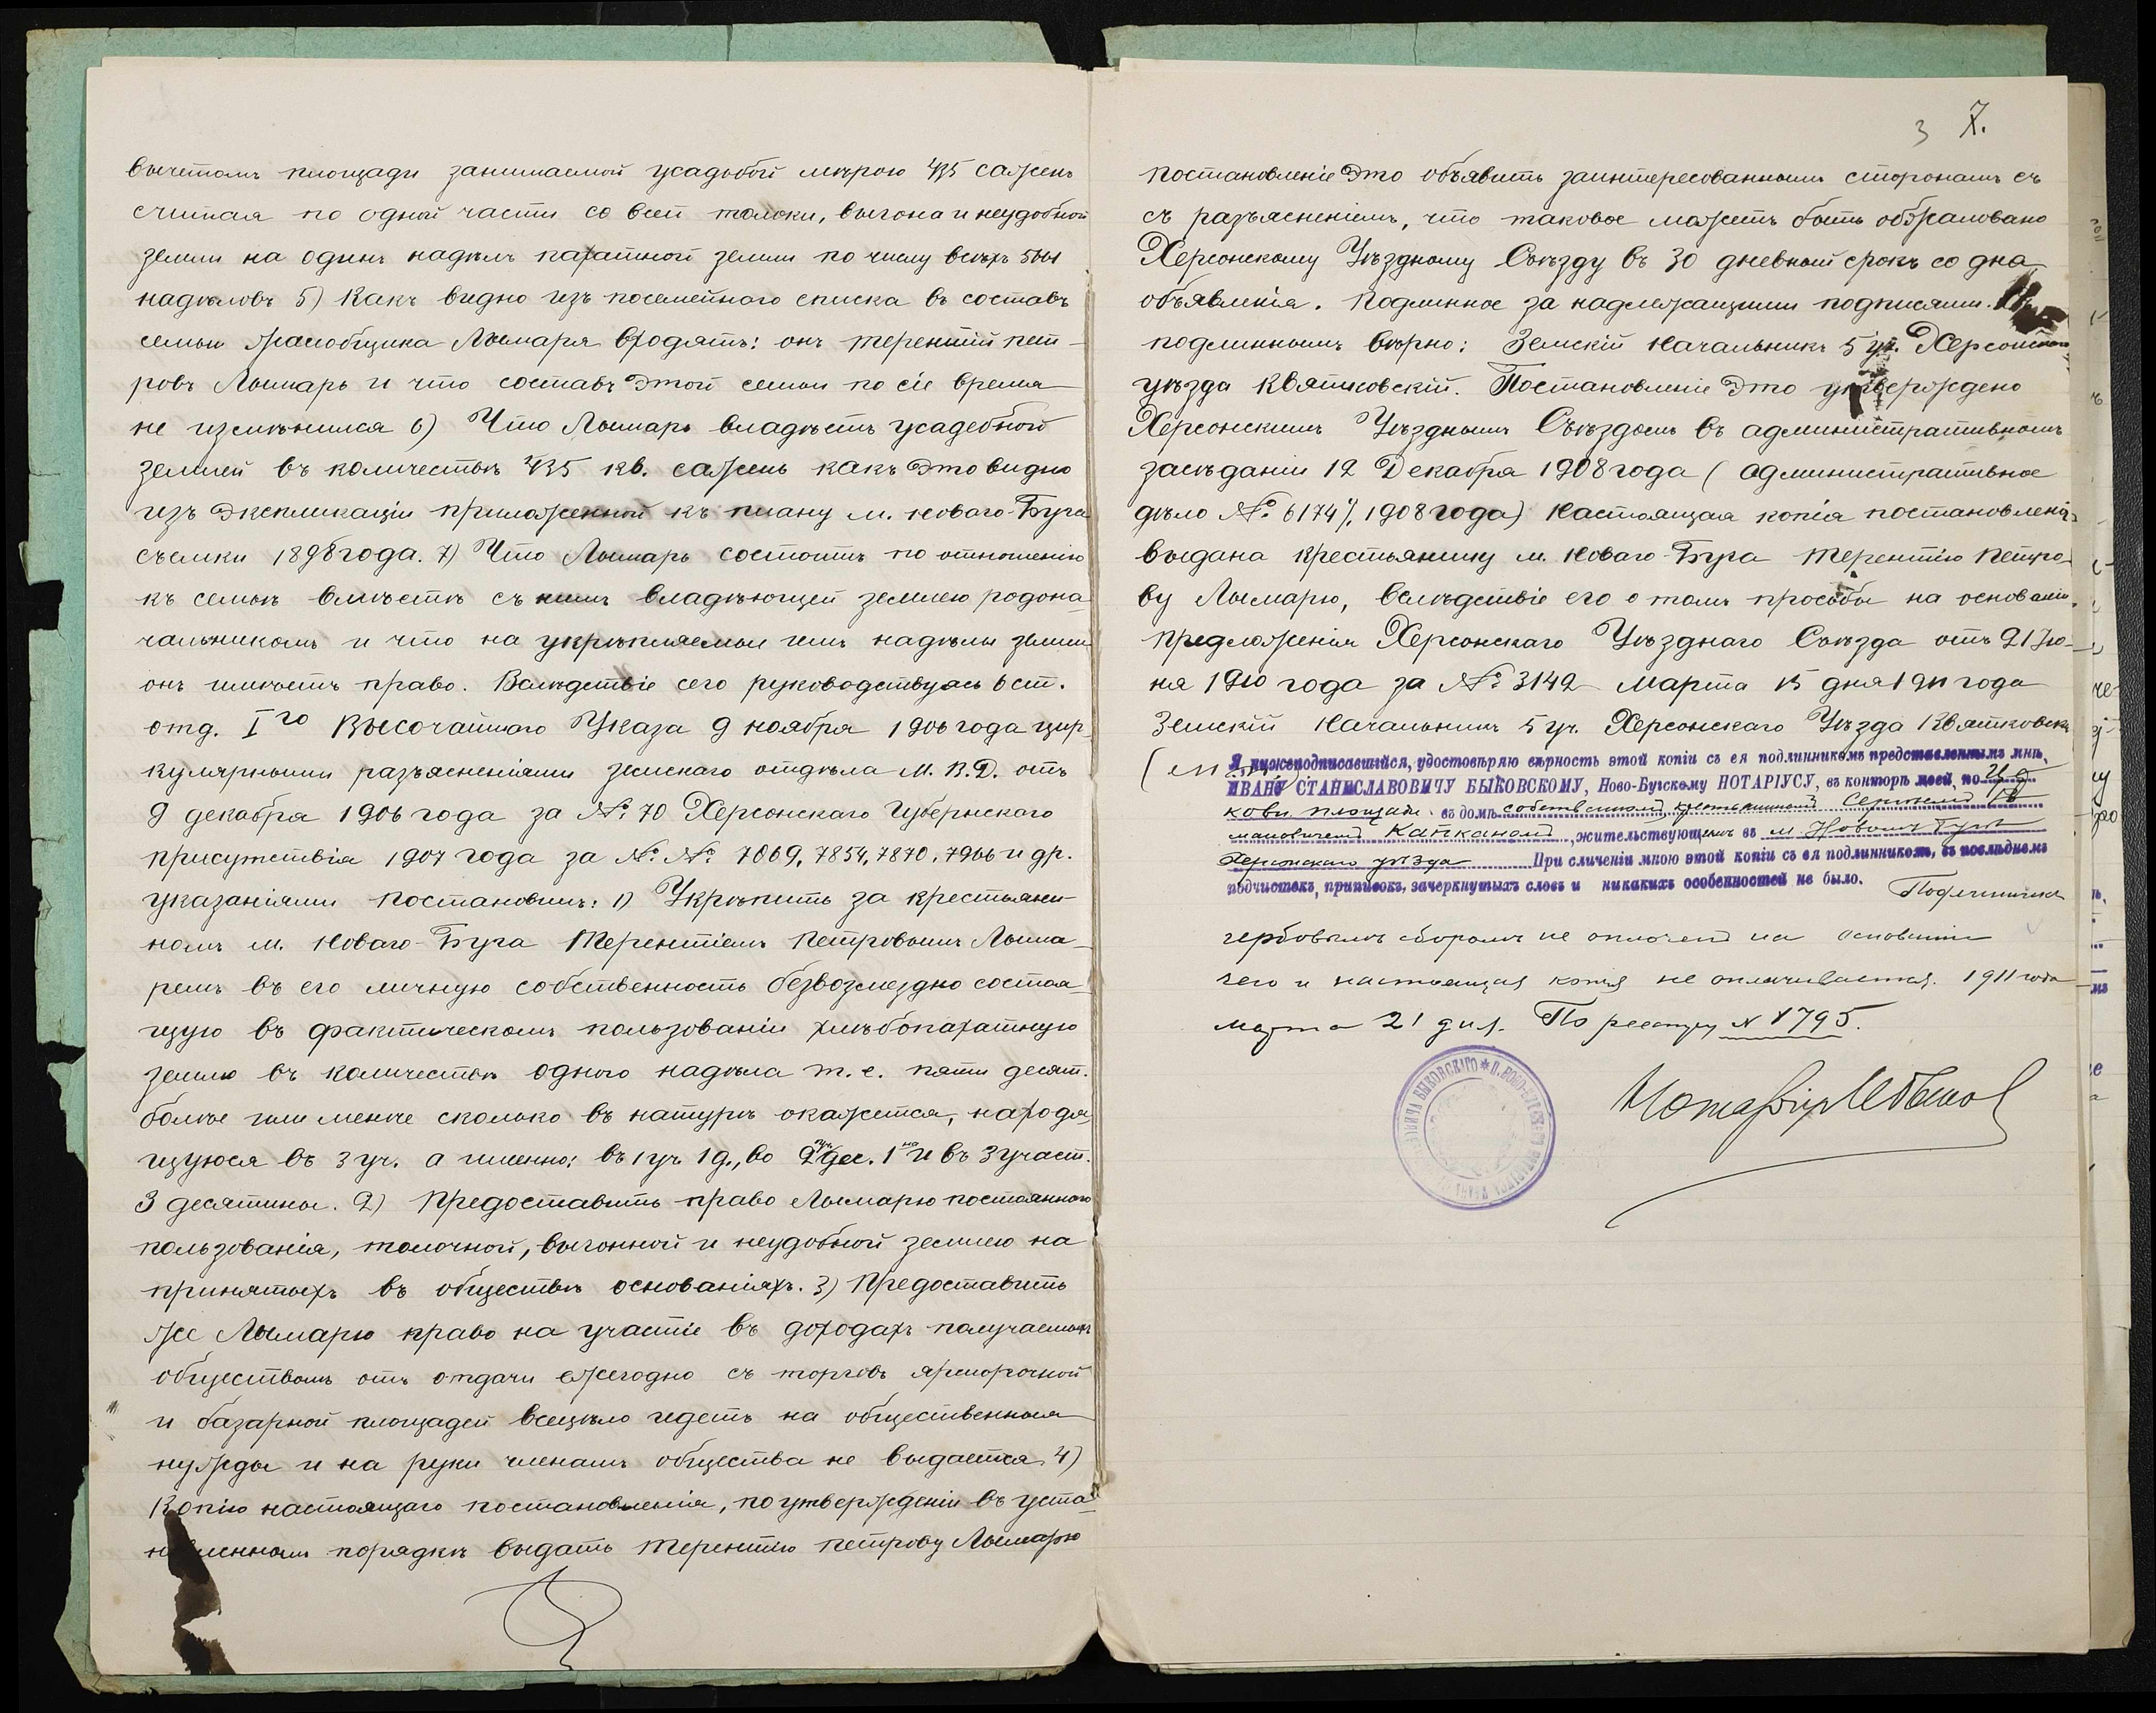 вычетомъ площади занимаемой усадьбой мѣрою 435 сажень
считая по одной части со всей толоки, выгона и неудобной
земли на одинъ надѣлъ пахатной земли по числу всѣхъ
надѣловъ 5) Какъ видно изъ посемейнаго списка въ составъ
семьи жалобщика Лымаря входятъ: онъ Терентій Пет-
ровъ Лымарь и что составъ этой семьи по сіе время
не измѣнился 6) Что Лымарь владѣетъ усадебной
землей въ количествѣ 435 кв. сажень какъ это видно
изъ экспликаціи приложенной къ плану м. Новаго-Буга
съемки 1898 года. 7) Что Лымарь состоитъ по отношенію
къ семьѣ вмѣстѣ съ нимъ владѣющей землею родона-
чальникомъ и что на укрѣпляемые имъ надѣлы земли
онъ имѣетъ право. Вслѣдствіе сего руководствуясь 6 ст.
отд. I го Высочайшаго Указа 9 ноября 1906 года цир-
кулярными разъясненіями земскаго отдѣла М. В. Д. отъ
9 декабря 1906 года за № 70 Херсонскаго Губернскаго
присутствія 1907 года за №. №. 7069, 7854, 7870, 7966 и др.
указаніями постановилъ: 1) Укрѣпить за крестьяни-
номъ м. Новаго-Буга Терентіемъ Петровымъ Лыма-
ремъ въ его личную собственность безвозмездно состоя-
щую въ фактическомъ пользованіи хлѣбопахатную
землю въ количествѣ одного надѣла т. е. пяти десят.
болѣе или менѣе сколько въ натурѣ окажется, находя-
щуюся въ 3 уч. а именно: въ 1 уч. 1 д., во 2 уч. 1 дес. и въ 3 участ.
3 десятины. 2) Предоставить право Лымарю постояннаго
пользованія, толочной, выгонной и неудобной землею на
принятыхъ въ обществѣ основаніяхъ. 3) Предоставить
же Лымарю право на участіе въ доходахъ получаемыхъ
обществомъ отъ отдачи ежегодно съ торговъ ярморочной
и базарной площадей всецѣло идетъ на общественныя
нужды и на руки членамъ общества не выдается. 4)
Копію настоящаго постановленія, по утвержденіи въ уста-
новленномъ порядкѣ выдать Терентію Петрову Лымарю
3 7.
постановленіе это объявить заинтересованнымъ сторонамъ съ
съ разъясненіемъ, что таковое можетъ быть обжаловано
Херсонскому Уѣздному Съѣзду въ 30 дневный срокъ со дня
объявленія. Подлинное за надлежащими подписями.
подлиннымъ вѣрно: Земскій Начальникъ 5 уч. Херсонскаго
уѣзда Квятковскій. Постановленіе это утверждено
Херсонскимъ Уѣзднымъ Съѣздомъ въ административномъ
засѣданіи 12 Декабря 1908 года (административное
дѣло №. 6174/ 1908 года) Настоящая копія постановленія
выдана крестьянину м. Новаго-Буга Терентію Петро-
ву Лымарю, вслѣдствіе его о томъ просьбы на основаніи
предложенія Херсонскаго Уѣзднаго Съѣзда отъ 21 Ію-
ня 1910 года за № 3142 Марта 15 дня 1911 года
Земскій Начальникъ 5 уч. Херсонскаго Уѣзда Квятковскій
(М. П.) Я нижеподписавшійся, удостовѣряю вѣрность этой копіи съ ея подлинникомъ представленнымъ мнѣ,
ИВАНУ СТАНИСЛАВОВИЧУ БЫКОВСКОМУ, Ново-Бугскому НОТАРІУСУ, въ конторѣ моей, по
площади въ домѣ собственномъ, крестьяниномъ
Капканомъ, жительствующимъ въ м. Новомъ Бугѣ
Херсонскаго уѣзда При сличеніи мною этой копіи съ ея подлинникомъ, въ послѣднемъ
подчистокъ, приписокъ, зачеркнутыхъ словъ и никакихъ особенностей не было. Подлинникъ
гербовымъ сборомъ не оплоченъ на основаніи
чего и настоящая копія не оплачивается. 1911 года
марта 21 дня. По реестру № 1795.
Нотаріусъ И Быков